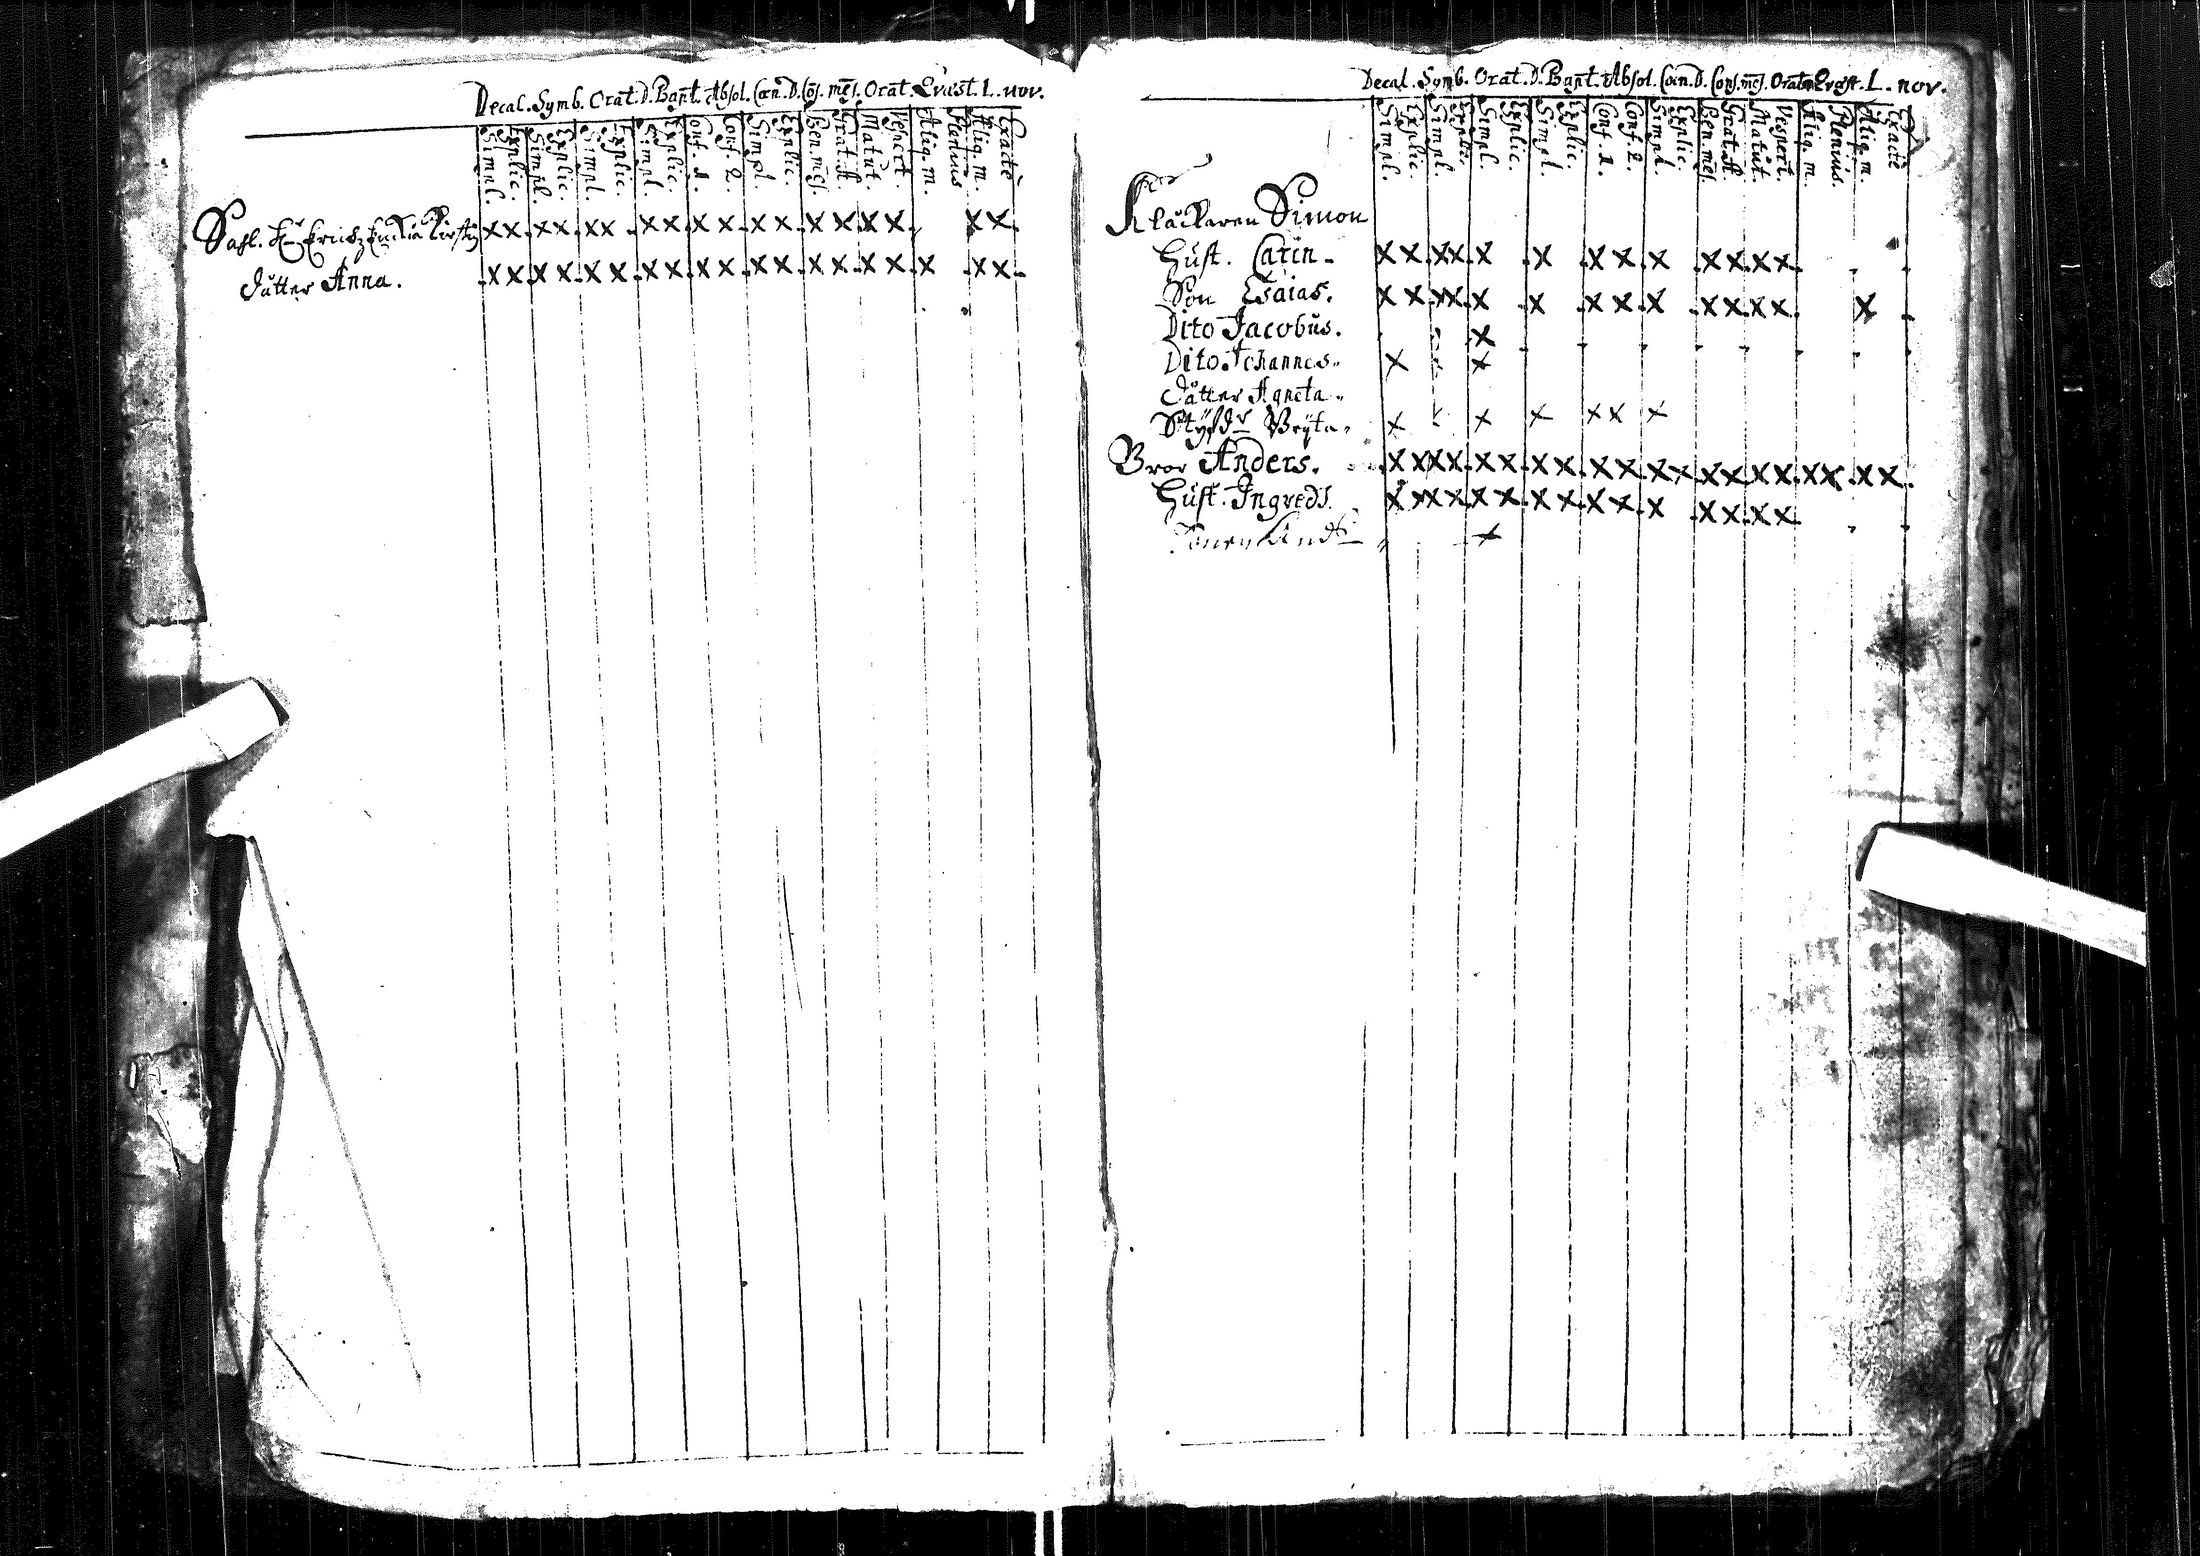 Decal. Symb. Orat. D. Bapt. Absol. Cœn. D. Cōs. mēs. Orat. Evāst. L. nov.
Simpl. Explic. Simpl. Explic. Simpl. Explic. Simpl. Explic. Conf. 1. Conf. 2. Simpl. Explic. Ben. mēs. Grat. A. Matut. Vespert. Aliq. m. Plenius Aliq. m. Exacte
Sahl. H. Erichz Kirstin x x x x x x x x x x x x x x x x x x
dåtter Anna. x x x x x x x x x x x x x x x x x x x
Decal. Symb. Orat. D. Bapt. Absol. Cœn. D. Cons. mēs. Orat. Evāst. L. nov.
Simpl. Explic. Simpl. Explic. Simpl. Explic. Simpl. Explic. Conf. 1. Conf. 2. Simpl. Explic. Ben. mēs. Grat. A. Matut. Vespert. Aliq. m. Plenius. Aliq. m. Exacte
Klåckaren Simon
Hust. Carin x x x x x x x x x x x x x
Son Esaias. x x x x x x x x x x x x x x
Dito Jacobus. x
Dito Johannes x x
dåtter Agneta
Stÿfdr Brÿta x x x x x x
Bror Anders. x x x x x x x x x x x x x x x x x x x x
Hust. Ingredh x x x x x x x x x x x x x x x
Sonen And. x